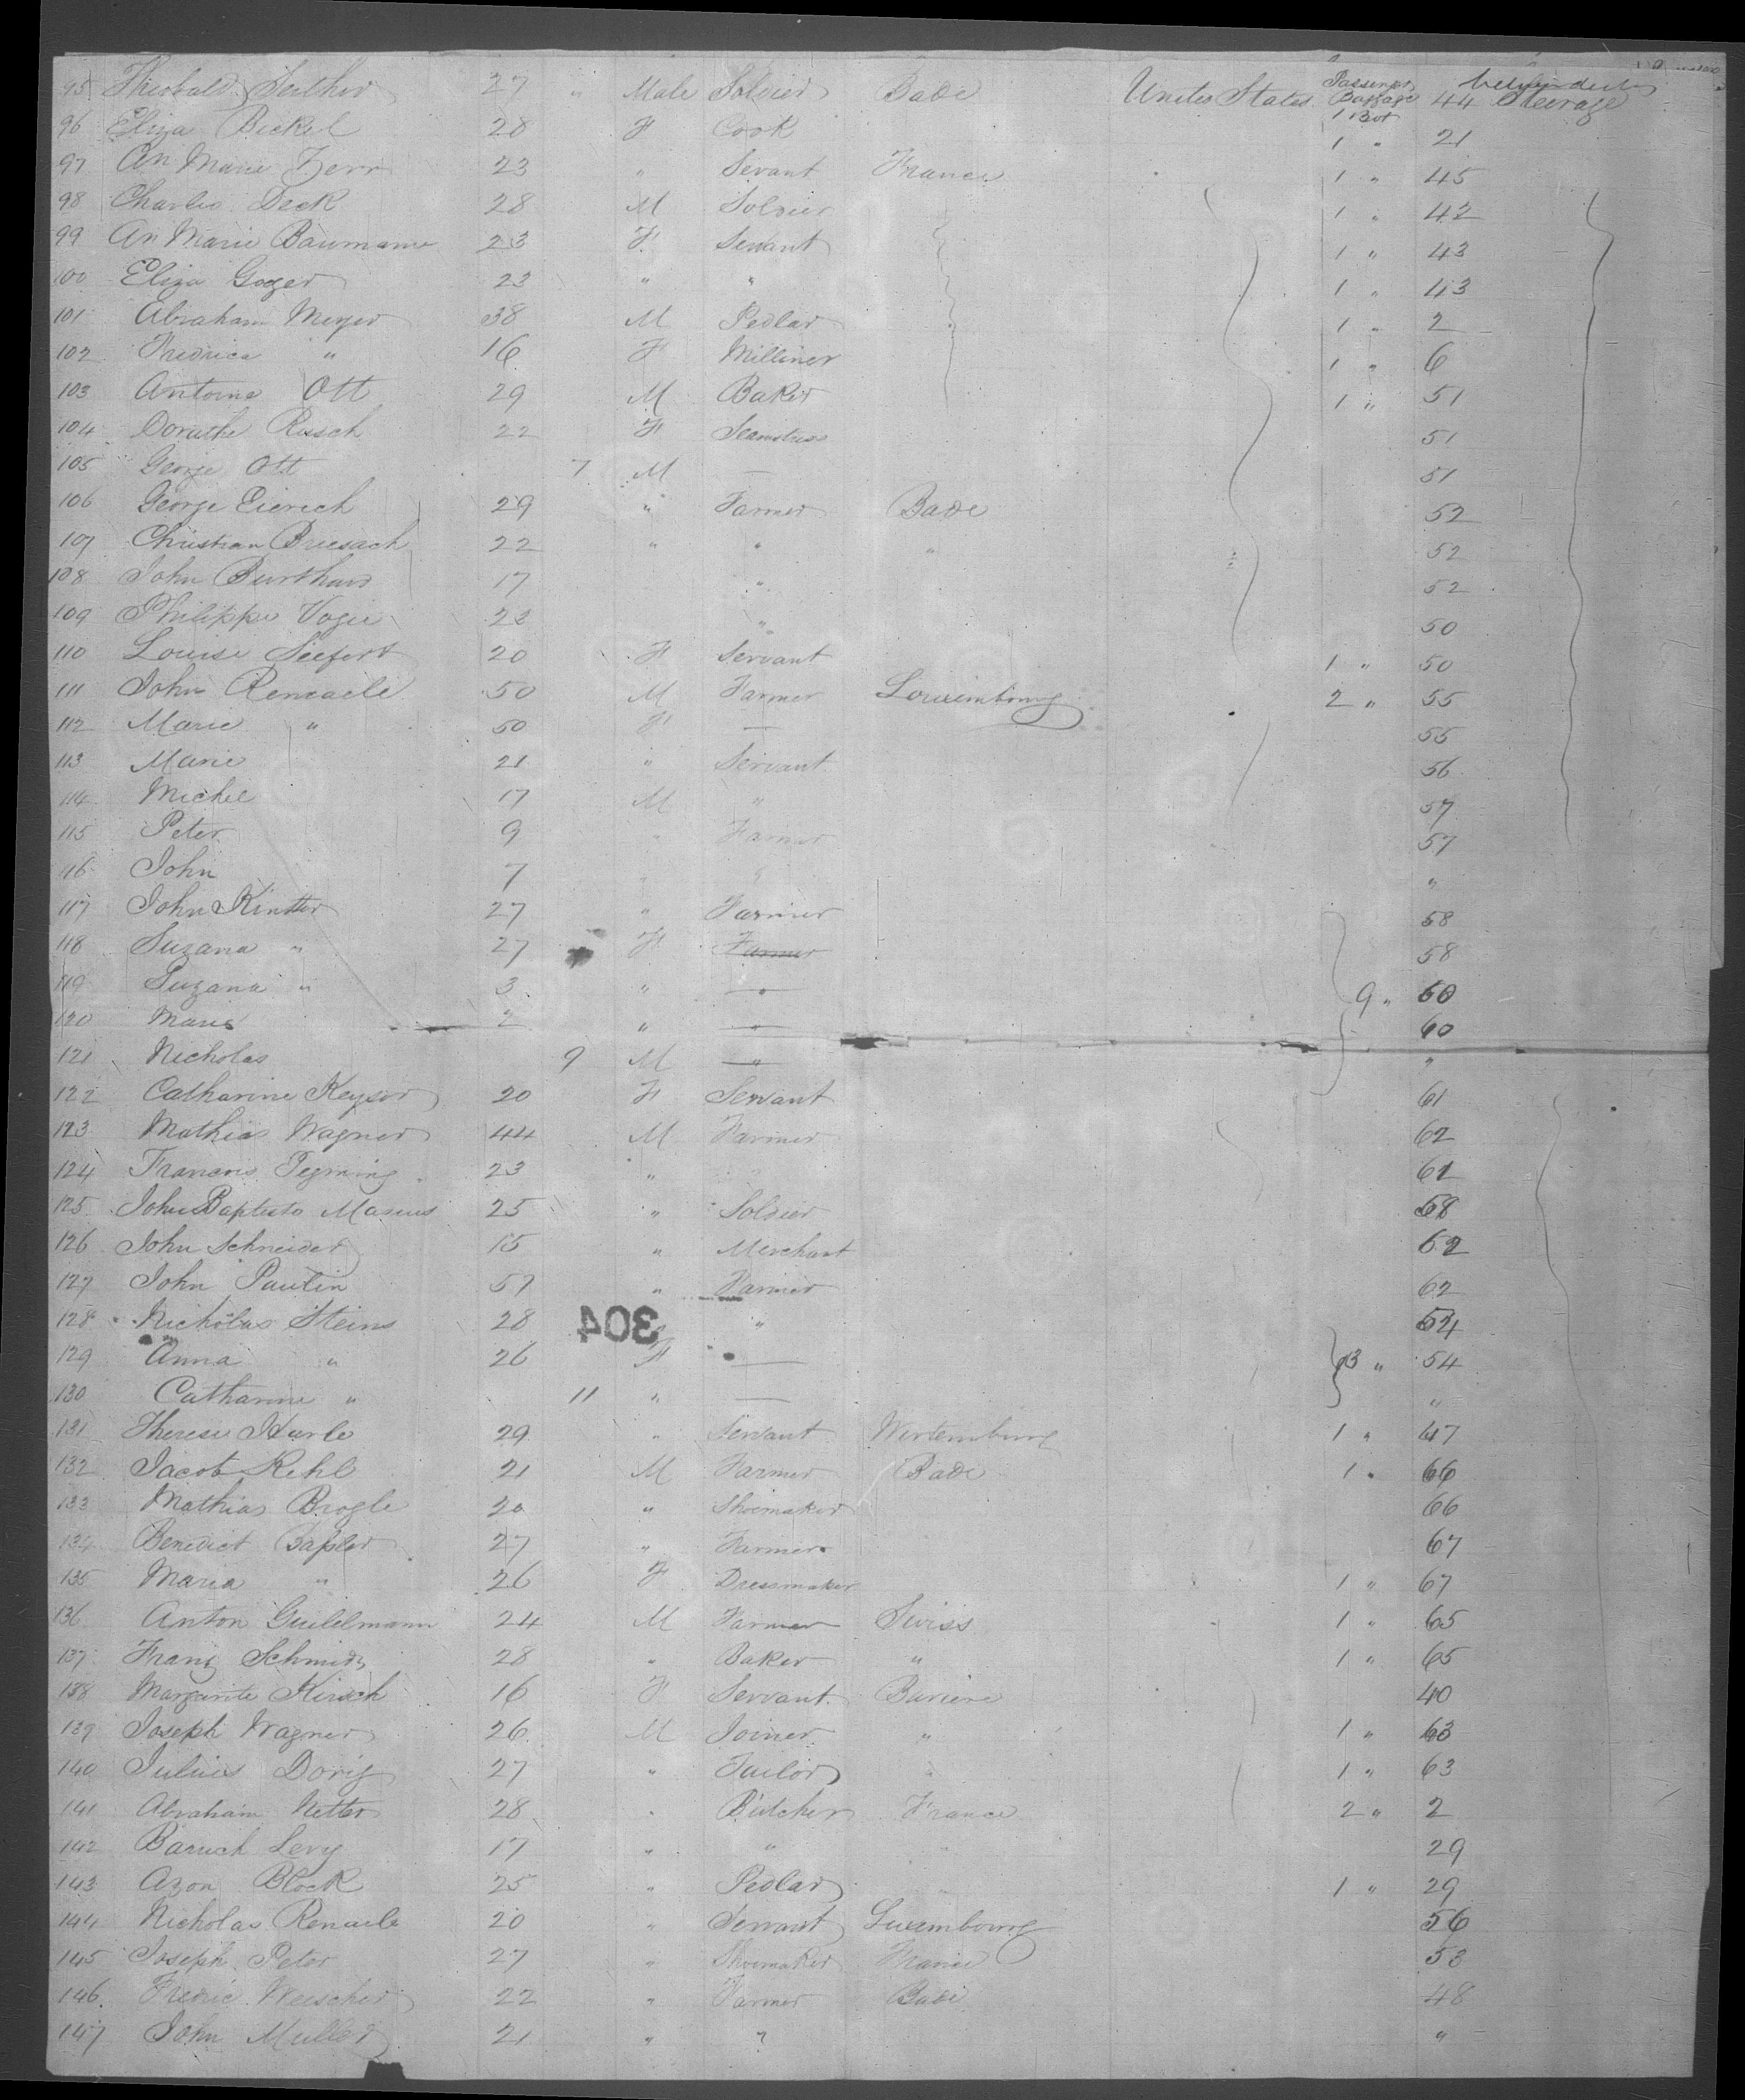 95 Theobald Seither 27 " Male Soldier Bade United States Passenger Baggage 1 Bot 44 Steerage
96 Eliza Bickel 28 F Cook 1 " 21
97 An Marie Zerr 23 " Sevant France 1 " 45
98 Charles Deck 28 M Soldier 1 " 42
99 An Marie Baumann 23 F Servant 1 " 43
100 Eliza Goger 23 " " 1 " 43
101 Abraham Meyer 38 M Pedlar 1 " 2
102 Fredrica " 16 F Milliner 1 " 6
103 Antoine Ott 29 M Baker 1 " 51
104 Dorothe Rusch 22 F Seamstress 51
105 George Ott 7 M — 51
106 George Eierich 29 " Farmer Bade 52
107 Christian Briesach 22 " " " 52
108 John Burkhard 17 " 52
109 Philippe Vogie 22 " 50
110 Louise Siefert 20 F Servant 1 " 50
111 John Renaele 50 M Farmer Louxembourg 2 " 55
112 Marie " 50 F — 55
113 Marie 21 " Servant 56
114 Michel 17 M " 57
115 Peter 9 " Farmer 57
116 John 7 " " "
117 John Kintter 27 " Farmer 58
118 Suzana " 27 F Farmer 58
119 Suzana " 3 " — 9 " 60
120 Marie 2 " — 60
121 Nicholas 9 M — "
122 Catharine Keyser 20 F Servant 61
123 Mathias Wagner 44 M Farmer 62
124 Francois 23 " 61
125 John Baptiste 25 " Soldier 68
126 John Schneider 15 " Merchant 62
127 John Paulin 57 " Farmer 62
128 Nicholas Steins 28 " 54
304
129 Anna " 26 F — 3 " 54
130 Catharine " 11 " — "
131 Therese Karle 29 " Servant Wurtemburg 1 " 47
132 Jacob Kehl 21 M Farmer Bade 1 " 66
133 Mathias Brogle 20 " Shoemaker 66
134 Benedict Baßler 27 " Farmer 67
135 Maria " 26 F Dressmaker 1 " 67
136 Anton 24 M Farmer Swiss 1 " 65
137 Franz Schmidt 28 " Baker " 1 " 65
138 Margarite Kirsch 16 F Servant Baviere 40
139 Joseph Wagner 26 M Joiner " 1 " 63
140 Julius Dorig 27 " Tailor " 1 " 63
141 Abraham Netter 28 " Butcher France 2 " 2
142 Baruch Levy 17 " " 29
143 Azon Block 25 " Pedlar 1 " 29
144 Nicholas Renaele 20 " Servant Luxembourg 56
145 Joseph Peter 27 " Shoemaker France 53
146 Frederic Weischer 22 " Farmer Bade 48
147 John Muller 21 " " "